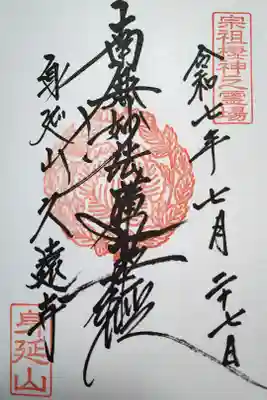 宗祖棲神之霊場
令和七年七月二十七日
南無妙法蓮華経
身延山久遠寺
身延山